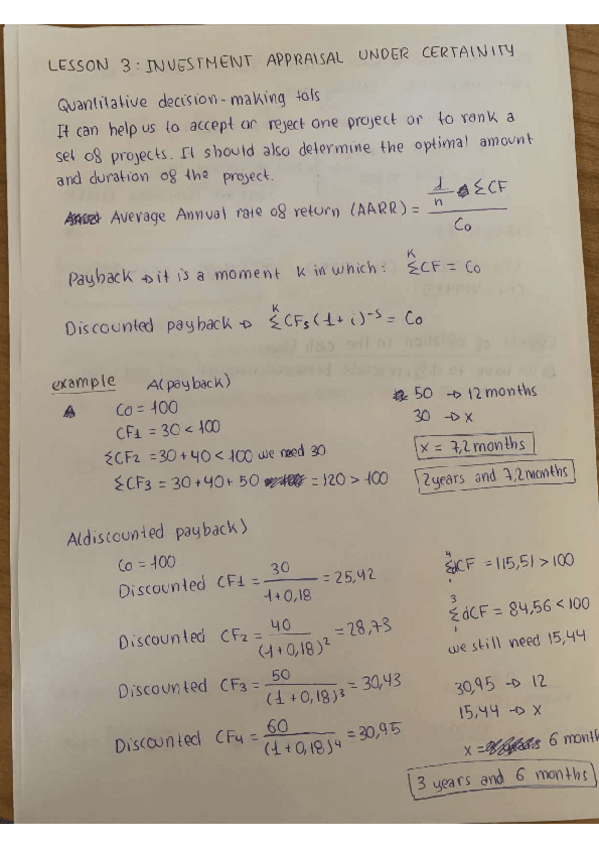 LESSON 3: INVESTMENT APPRAISAL UNDER CERTAINITY
Quantitative decision-making tols
It can help us to accept or reject one project or to rank a
set of projects. It should also determine the optimal amount
and duration of the project.
Average Annual rate of return (AARR) = 1/n ΣCF / Co
Payback → it is a moment K in which: K ΣCF = Co
Discounted payback → K ΣCFs (1+i)^-s = Co
example A(payback)
Co = 100
CF1 = 30 < 100
ΣCF2 = 30+40 < 100 we need 30
ΣCF3 = 30+40+50 = 120 > 100
50 → 12 months
30 → x
x = 7,2 months
2 years and 7,2 months
A(discounted payback)
Co = 100
Discounted CF1 = 30 / 1+0,18 = 25,42
Discounted CF2 = 40 / (1+0,18)^2 = 28,73
Discounted CF3 = 50 / (1+0,18)^3 = 30,43
Discounted CF4 = 60 / (1+0,18)^4 = 30,95
4 Σ 1 dCF = 115,51 > 100
3 Σ 1 dCF = 84,56 < 100
we still need 15,44
30,95 → 12
15,44 → x
x = 6 month
3 years and 6 months